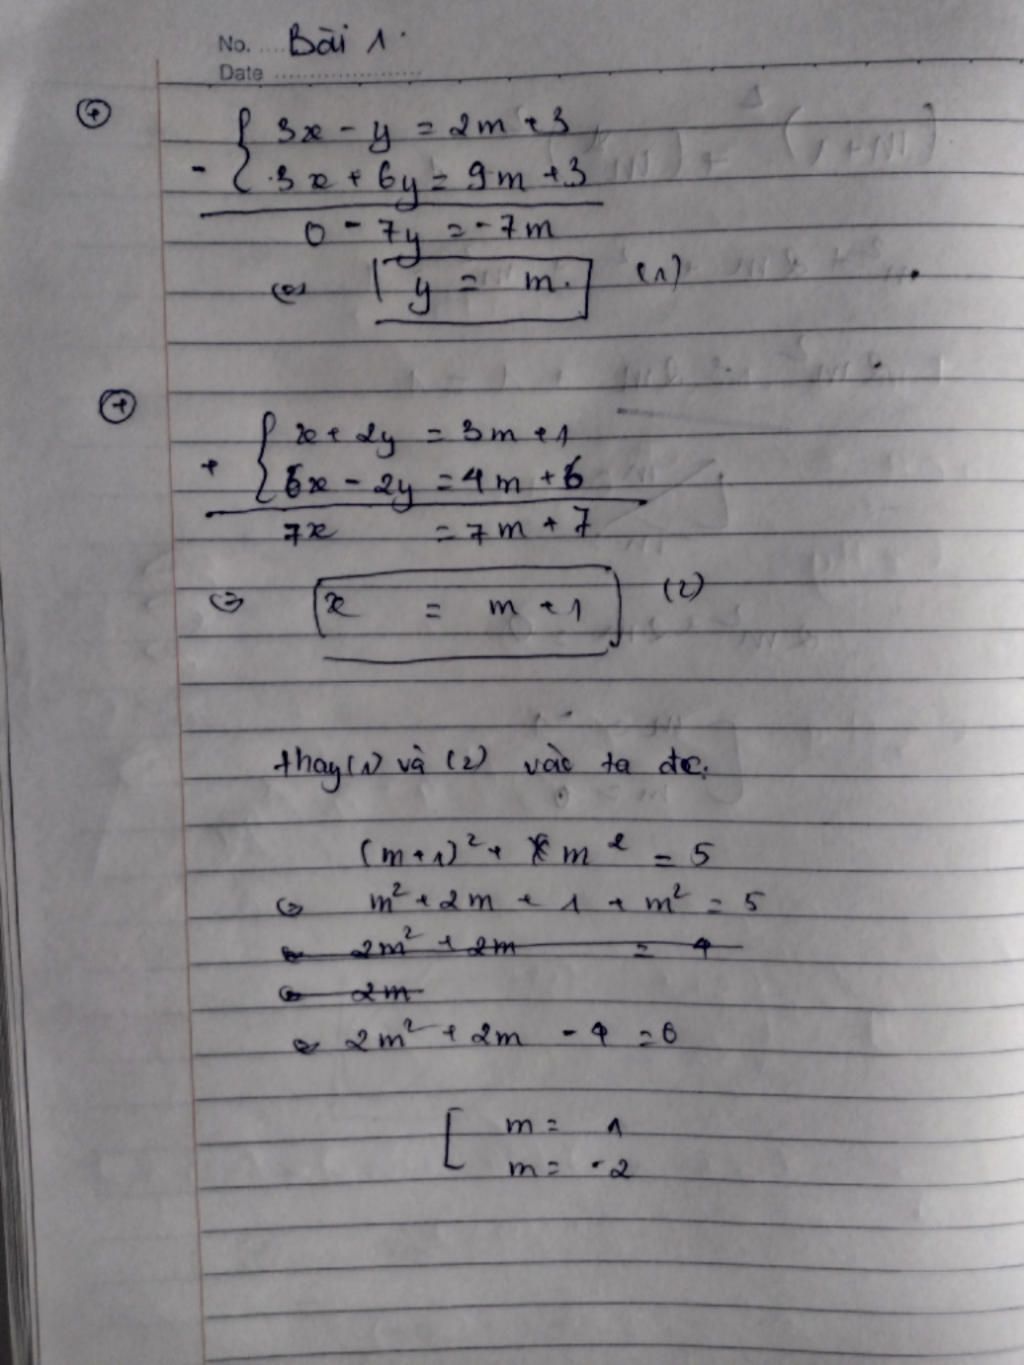 No. .... Bài 1.
Date ....................
(+)
{ 3x - y = 2m + 3
- { 3x + 6y = 9m + 3
0 - 7y = -7m
⇔ y = m. (1)
(+)
{ x + 2y = 3m + 1
+ { 6x - 2y = 4m + 6
7x = 7m + 7
⇔ x = m + 1 (2)
thay (1) và (2) vào ta đc.
(m+1)² + m² = 5
⇔ m² + 2m + 1 + m² = 5
⇔ 2m² + 2m = 4
⇔ 2m
⇔ 2m² + 2m - 4 = 0
[ m = 1
m = -2